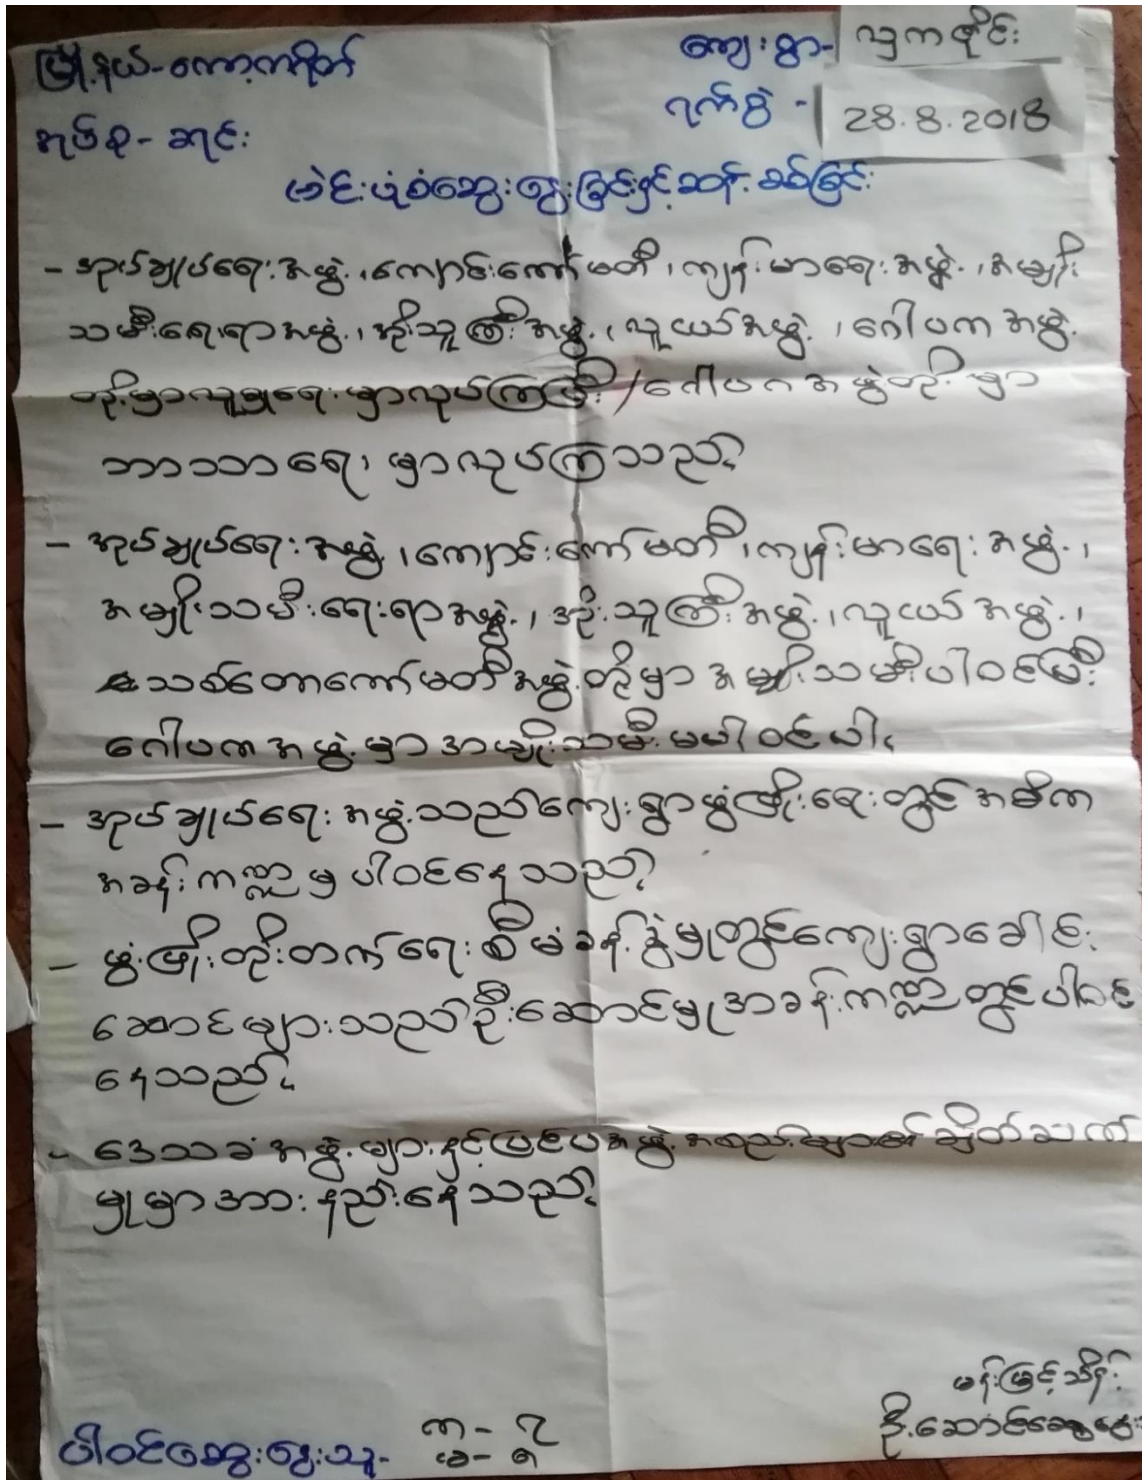 မြို့နယ်-ကော့ကရိတ် ကျေးရွာ- လှကဒိုင်း
အုပ်စု- ဆုင်း ရက်စွဲ - 28.8.2018
ပုံစံဆွေးနွေးခြင်းနှင့်ဆန်းစစ်ခြင်း
- အုပ်ချုပ်ရေးအဖွဲ့၊ကျောင်းကော်မတီ၊ကျန်းမာရေးအဖွဲ့၊အမျိုး
သမီးရေးရာအဖွဲ့၊အိုးသူကြီးအဖွဲ့၊လူငယ်အဖွဲ့၊ဂေါပကအဖွဲ့
တို့မှာလူမှုရေးမှာလုပ်ကြပြီး/ဂေါပကအဖွဲ့တို့မှာ
ဘာသာရေးမှာလုပ်ကြသည်။
- အုပ်ချုပ်ရေးအဖွဲ့၊ကျောင်းကော်မတီ၊ကျန်းမာရေးအဖွဲ့၊
အမျိုးသမီးရေးရာအဖွဲ့၊အိုးသူကြီးအဖွဲ့၊လူငယ်အဖွဲ့၊
သစ်တောကော်မတီအဖွဲ့တို့မှာအမျိုးသမီးပါဝင်ပြီး
ဂေါပကအဖွဲ့မှာအမျိုးသမီးမပါဝင်ပါ။
- အုပ်ချုပ်ရေးအဖွဲ့သည်ကျေးရွာဖွံ့ဖြိုးရေးတွင်အဓိက
အခန်းကဏ္ဍမှပါဝင်နေသည်။
- ဖွံ့ဖြိုးတိုးတက်ရေးစီမံခန့်ခွဲမှုတွင်ကျေးရွာခေါင်း
ဆောင်များသည်ဦးဆောင်မှုအခန်းကဏ္ဍတွင်ပါဝင်
နေသည်။
- ဒေသခံအဖွဲ့များနှင့်ပြင်ပအဖွဲ့အစည်းများ၏ချိတ်ဆက်
မှုမှာအားနည်းနေသည်။
မန်းမြင့်သိန်း
ပါဝင်ဆွေးနွေးသူ- က- ၇ ဦးဆောင်ဆွေးနွေး